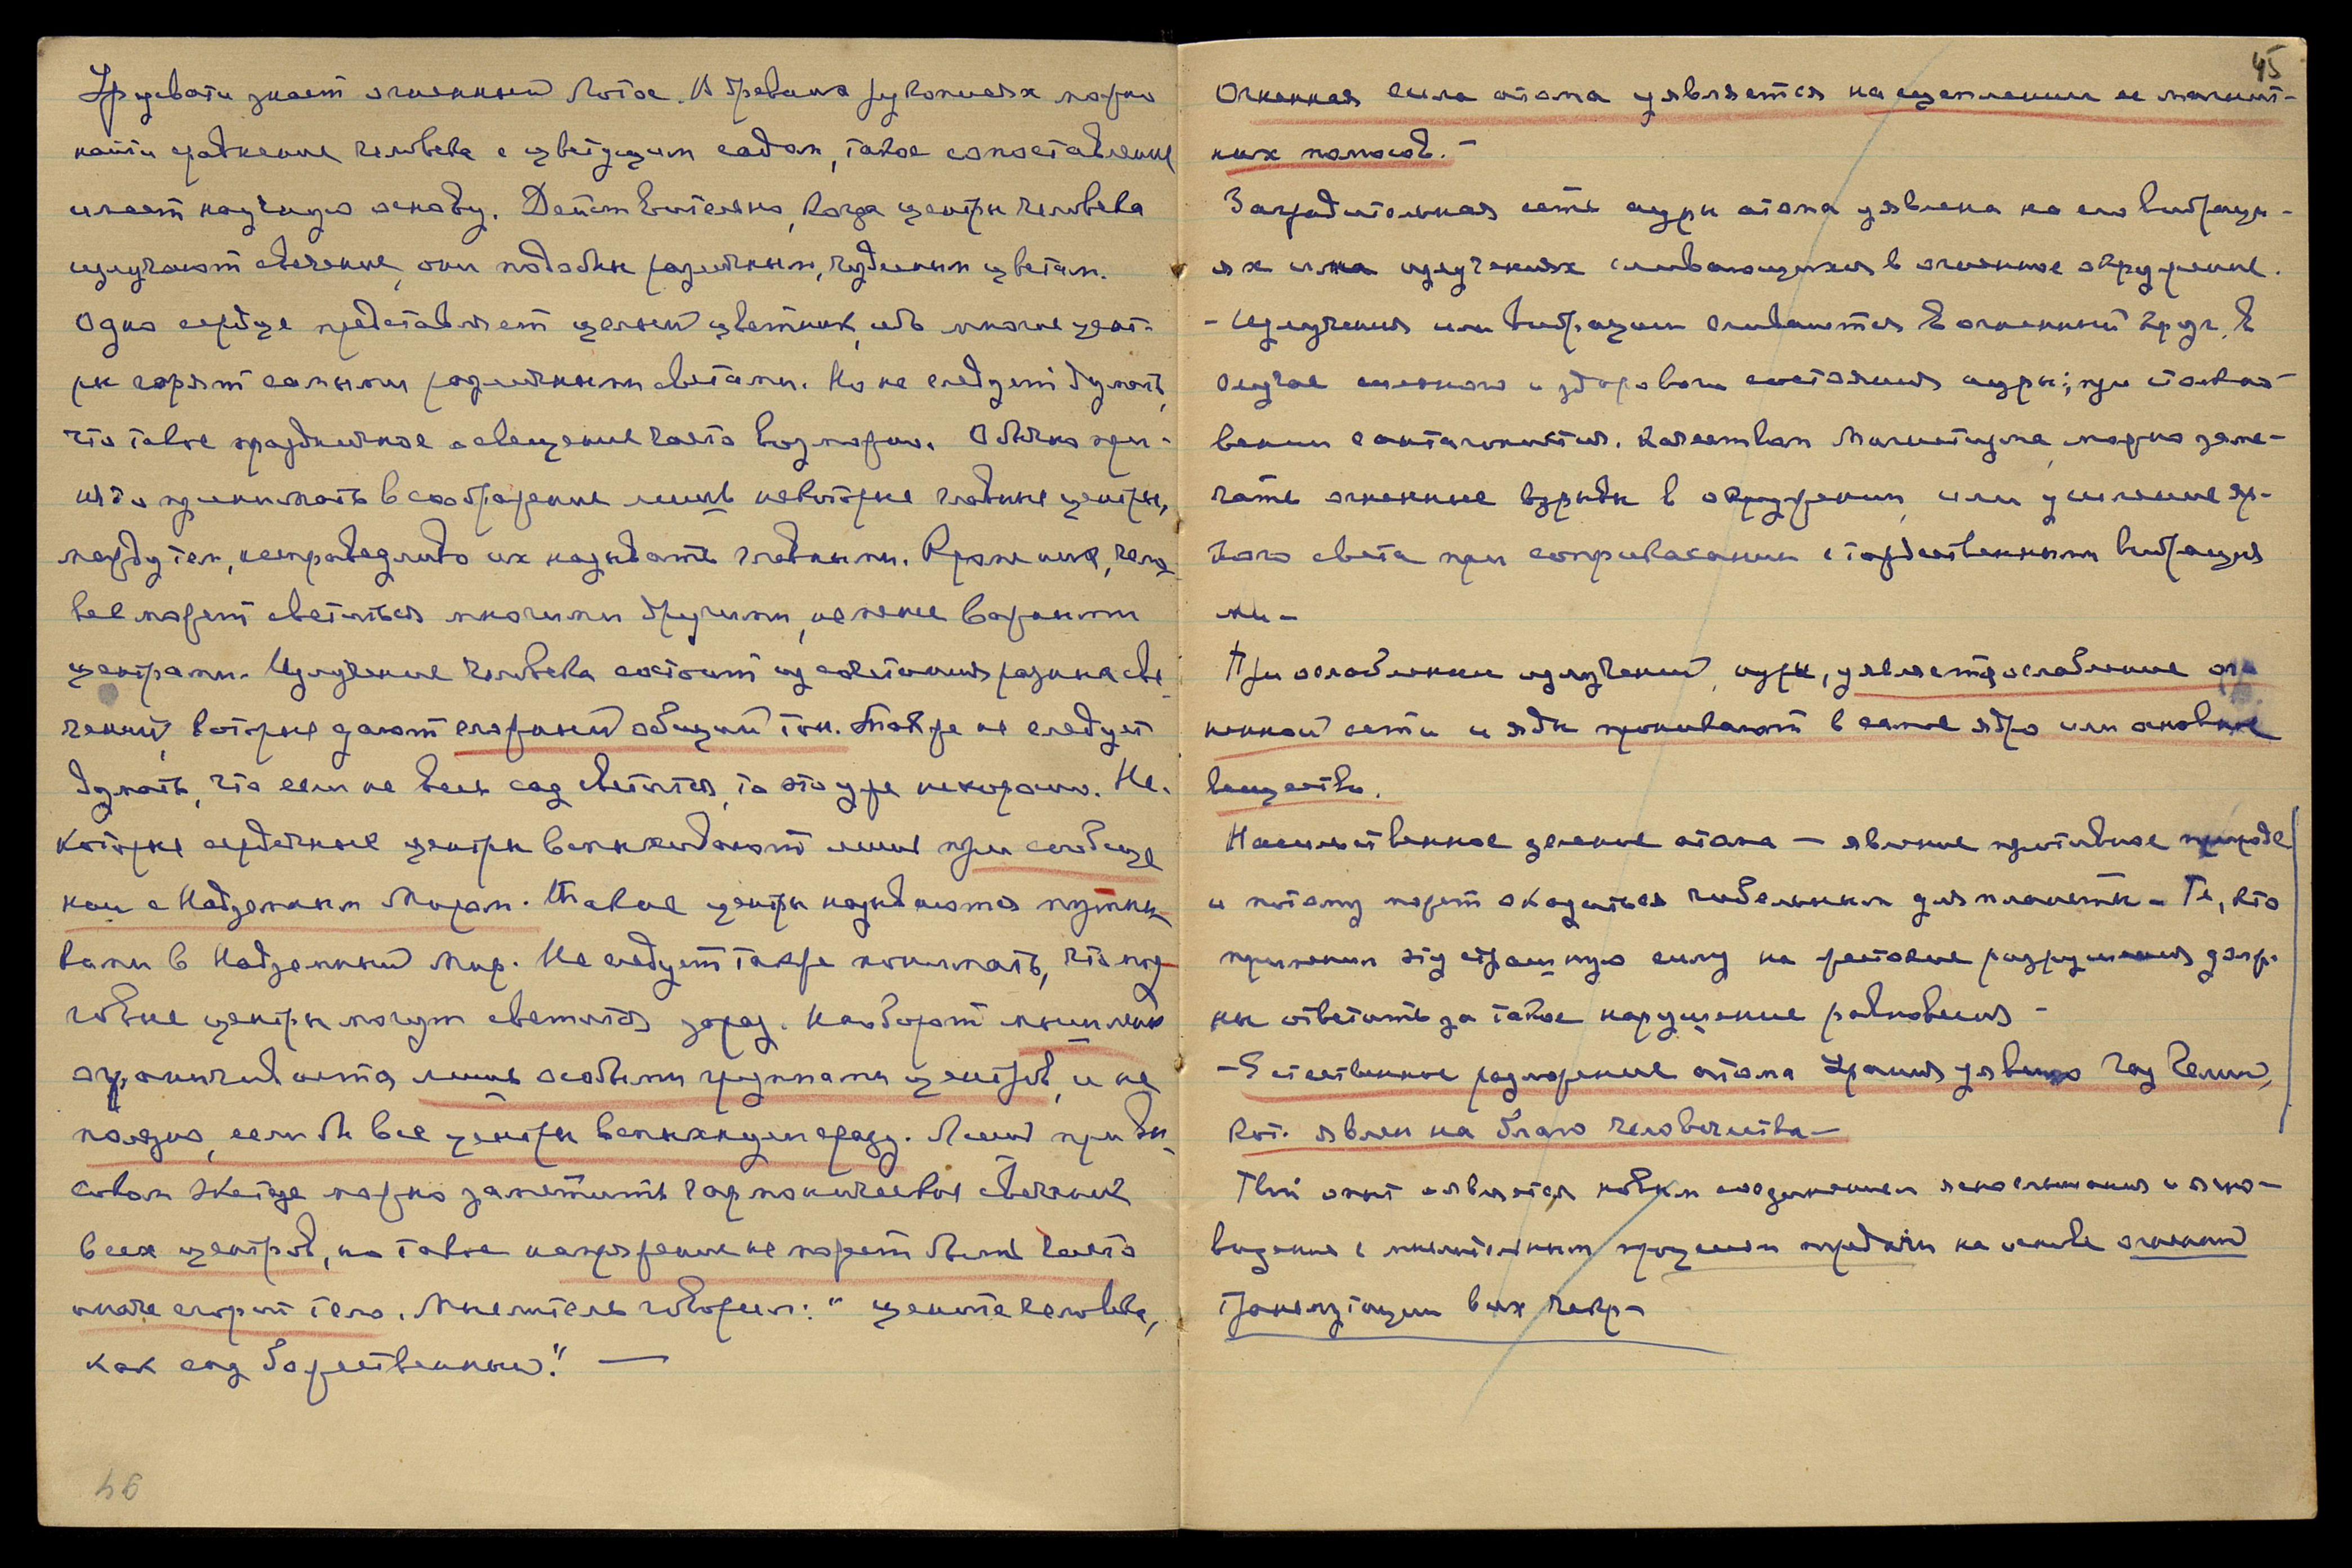 Урусвати знает огненный Лотос. В древних рукописях можно
найти сравнение человека с цветущим садом, такое сопоставление
имеет научную основу. Действительно, когда центры человека
излучают свечение, они подобны различным, чудесным цветам.
Одно сердце представляет целый цветник, ибо многие цент-
ры горят самыми различными светами. Но не следует думать,
что такое праздничное освещение часто возможно. Обычно при-
нято принимать в соображение лишь некоторые главные центры,
между тем, несправедливо их называть главными. Кроме них, чело
век может светиться многими другими, не менее важными
центрами. Излучение человека состоит из сочетания разных све
чений, которые дают сложный общий тон. Также не следует
думать, что если не весь сад светится, то это уже нехорошо. Не-
которые сердечные центры вспыхивают лишь при сообще
нии с Надземным Миром. Такие центры называются путни
ками в Надземный Мир. Не следует также понимать, что
центры могут светиться зараз. Наоборот мышление
ограничивается лишь особыми группами центров, и не
полезно, если бы все центры вспыхнули сразу. Лишь при вы
соком экстазе можно заметить гармоническое свечение
всех центров, но такое напряжение не может быть часто
иначе сгорит тело. Мыслитель говорил: " цените человека,
как сад божественный." —
46
45
Огненная сила атома уявляется на сцеплении ее магнит-
ных полюсов. -
Заградительная сеть ауры атома уявлена на его вибраци-
ях и на излучениях сливающихся в огненное окружение.
- Излучения или вибрации сливаются в огненный круг, в
случае сильного и здорового состояния ауры; при столкно-
вении с антагонистич. качеством Магнетизма, можно заме-
чать огненные взрывы в окружении, или усиление яр-
кого света при соприкасании с тождественными вибрация
ми -
При ослаблении излучений ауры, уявляется ослабление огн
ненной сети и яды проникают в самое ядро или основное
вещество.
Насильственное деление атома — явление противное природе
и потому может оказаться гибельным для планеты - Те, кто
применил эту страшную силу на жестокие разрушения должн
ны ответить за такое нарушение равновесия -
- Естественное разложение атома Урания уявило газ Гелий,
кот. явлен на благо человечества -
Твой опыт является новым соединением яснослышания и ясно-
видения с мыслительным процессом передачи на основе огненной
трансмутации всех чакр -